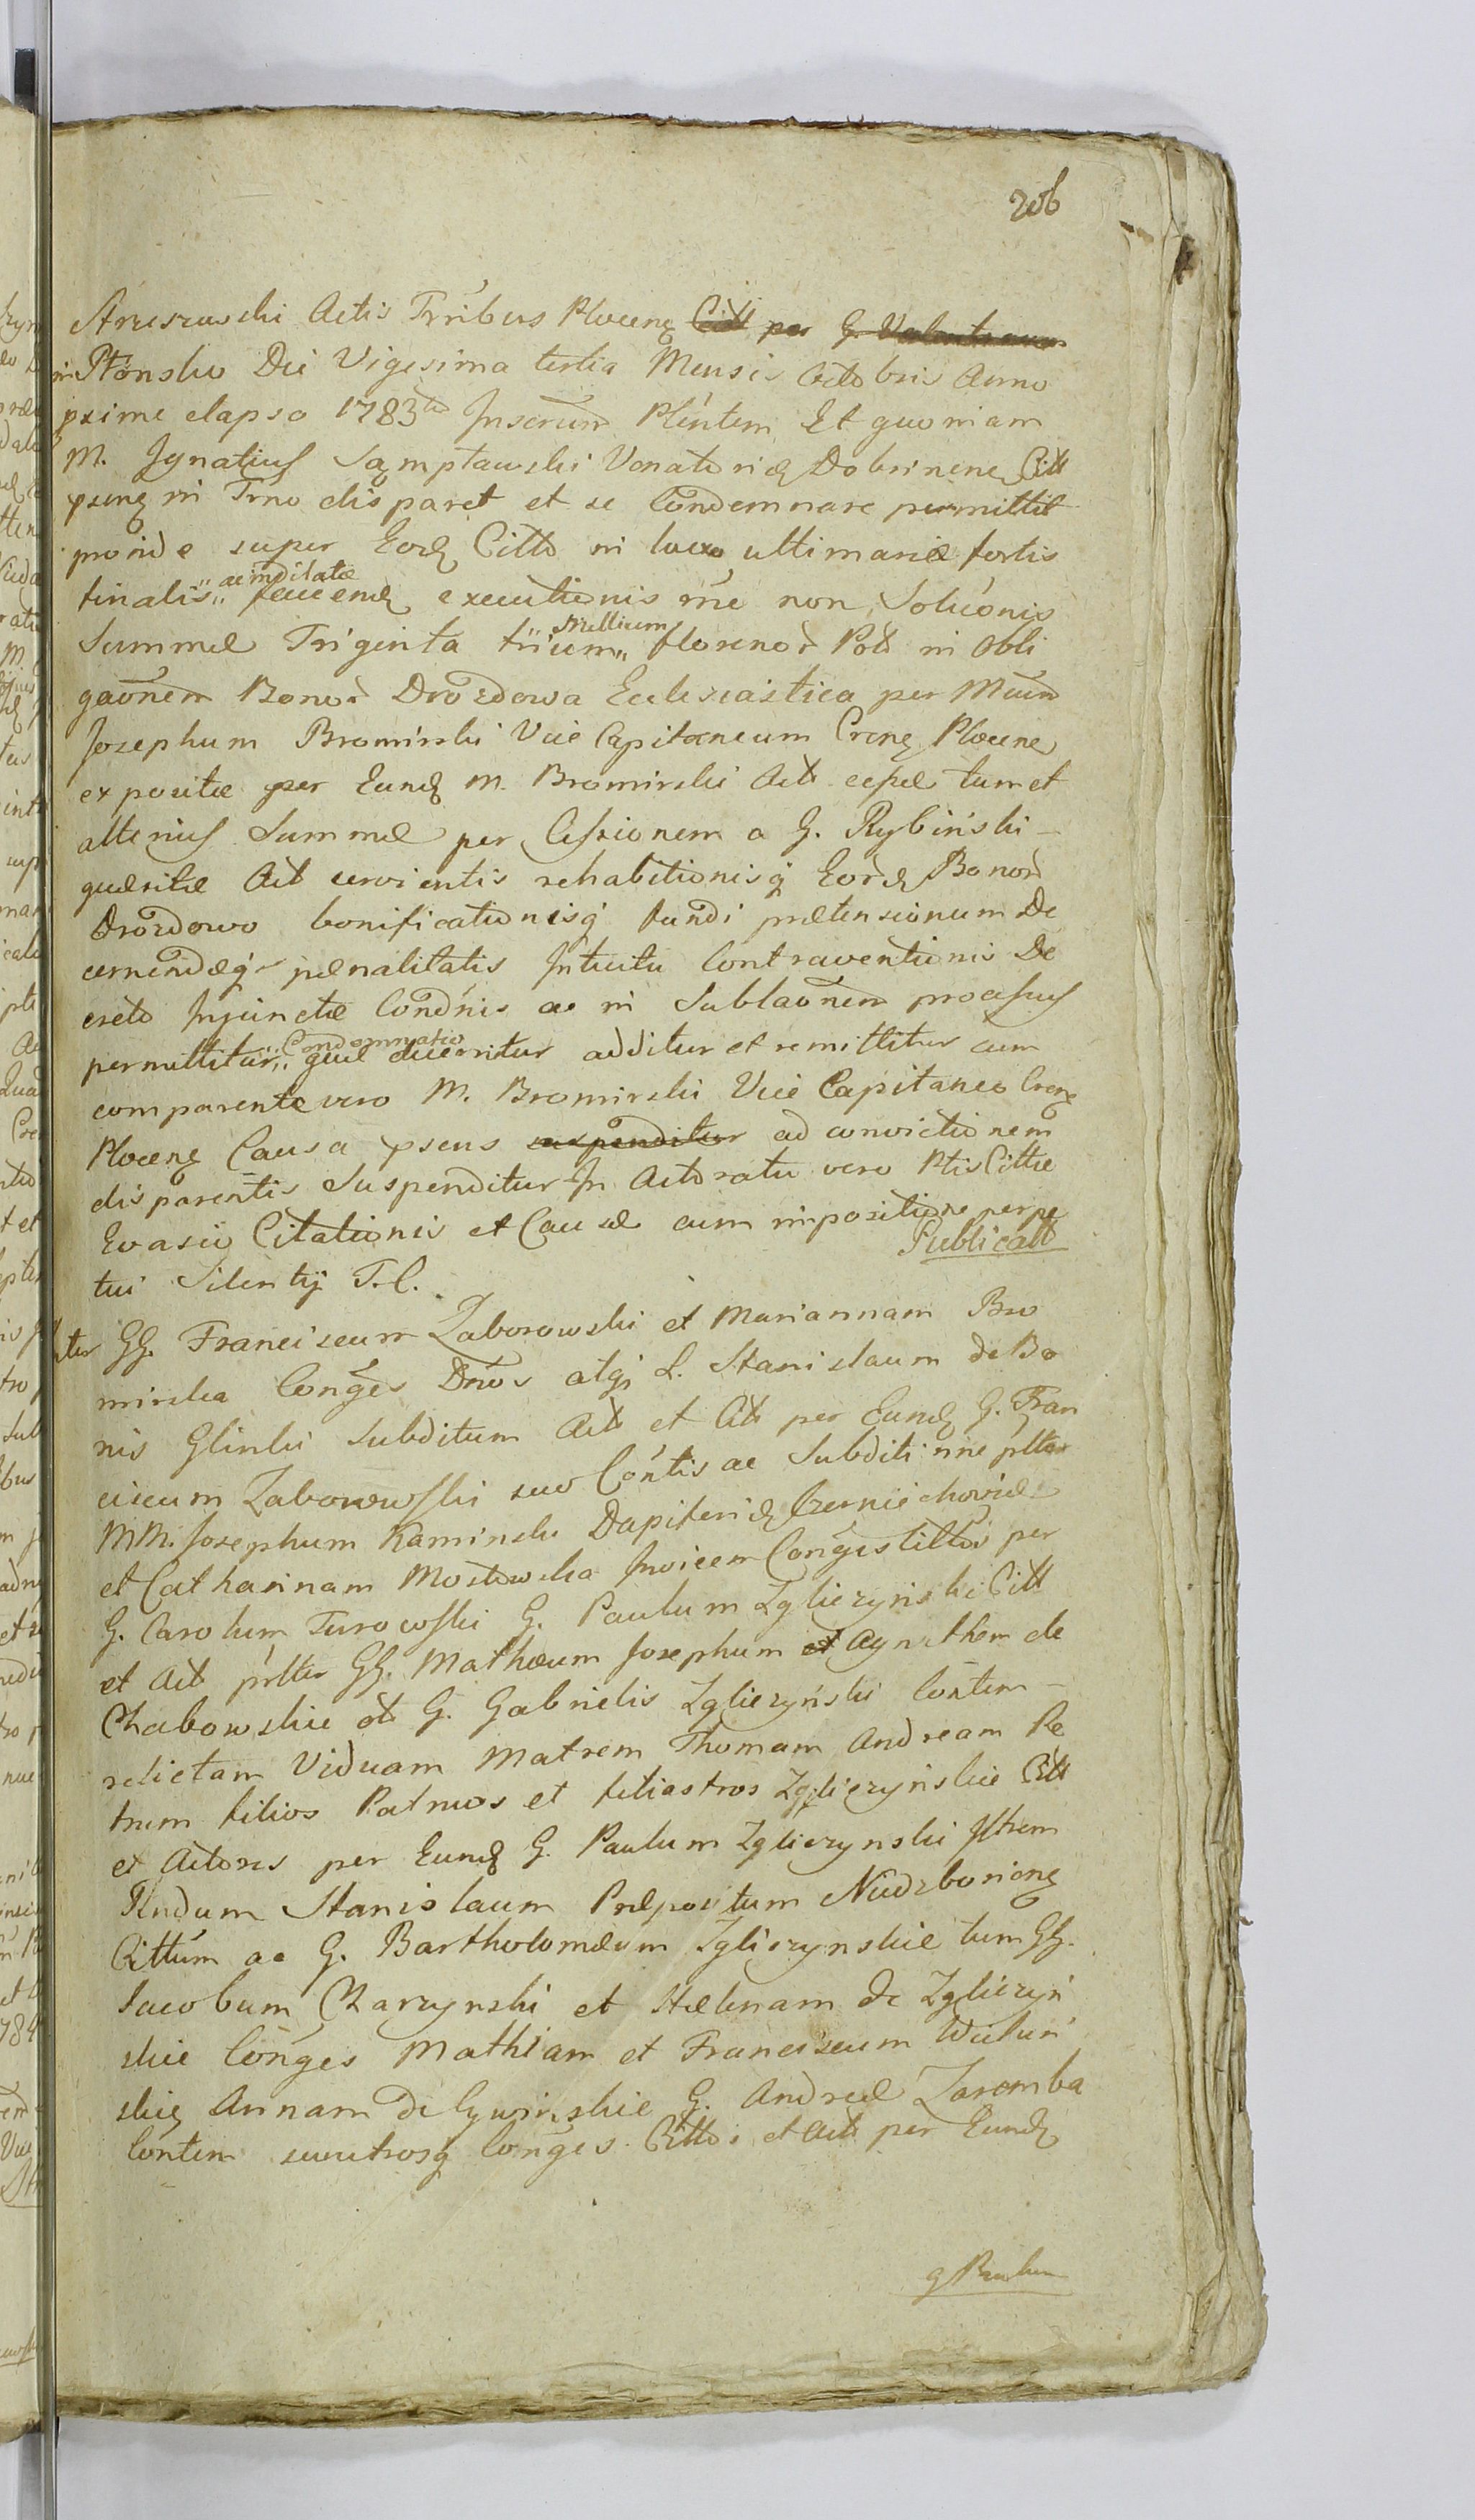 206
Strzeszewski Actis Trnbus Plocens Citt per G. Valentinum
in Płonsko Die Vigesima tertia Mensis Octobris Anno
pxime elapso 1783tio Insertum Plentem Et quoniam
M. Ignatius Sąmpławski Venatoridę Dobrinenę Citt
psenę in Trno disparet et se Condemnare permittit
proinde super Eodę Citto in lucro ultimariæ fortis
finalis,, ac indilatæ faciendę executionis rne non Soluonis
Summæ Triginta trium,, Millium florenor Pol in obli
gaonem Bonor Drozdowa Ecclesiastica per Mcum
Josephum Bromirski Vice Capitaneum Crenę Plocenę
expositæ per Eundę M. Bromirski Act cepæ tum et
alterius Summæ per Cessionem a G. Rybiński
quæsitæ Act servientis rehabitionisq Eordę Bonor
Drozdowo bonificationisq fundi prætensionum De
cernendæq pænalitatis Intuitu Contraventionis De
creto Injunctæ Condnis ac in Sublaonem processus
permittitur,, Condemnatio quæ decernitur additur et remittitur cum
comparente vero M. Bromirski Vice Capitaneo Crenę
Plocenę Causa psens suspenditur ad convictionem
disparentis Suspenditur In Actoratu vero Ptis Cittæ
Evasio Citationis et Causæ cum impositione perpe
tui Silentij T. C. Publicatt
Inter GG. Franciscum Zaborowski et Mariannam Bro
mirska Conges Dnos atq L. Stanislaum de Bo
nis Glinki Subditum Act et Citt per Eundę G. Fran
ciscum Zaborowski suo Contis ac Subditi nne pltor
MM. Josephum Kaminski Dapiferidę Czerniechoviæ
et Catharinam Mostowska Invicem Conges Cittos per
G. Carolum Turowski G. Paulum Zglieczynski Citt
et Act pnlter GG. Mathæum Josephum et Agnethem de
Chabowskie ot G. Gabrielis Zglieczyński Contem
relictam Viduam Matrem Thomam Andream Pe
trum filios Patruos et filiastros Zglieczyńskie Citt
et Actores per Eundę G. Paulum Zglieczynski Istrem
Rndum Stanislaum Præpositum Niedzborienę
Cittum ac G. Bartholomæum Zglieczynskie tum GG.
Jacobum Charzynski et Helenam de Zglieczyń
skie Conges Mathiam et Franciscum
skie Annam de Cywinskie G. Andreæ Zaremba
Contem suutrosq Conges Cittos et Act per Eundę
G Paulum